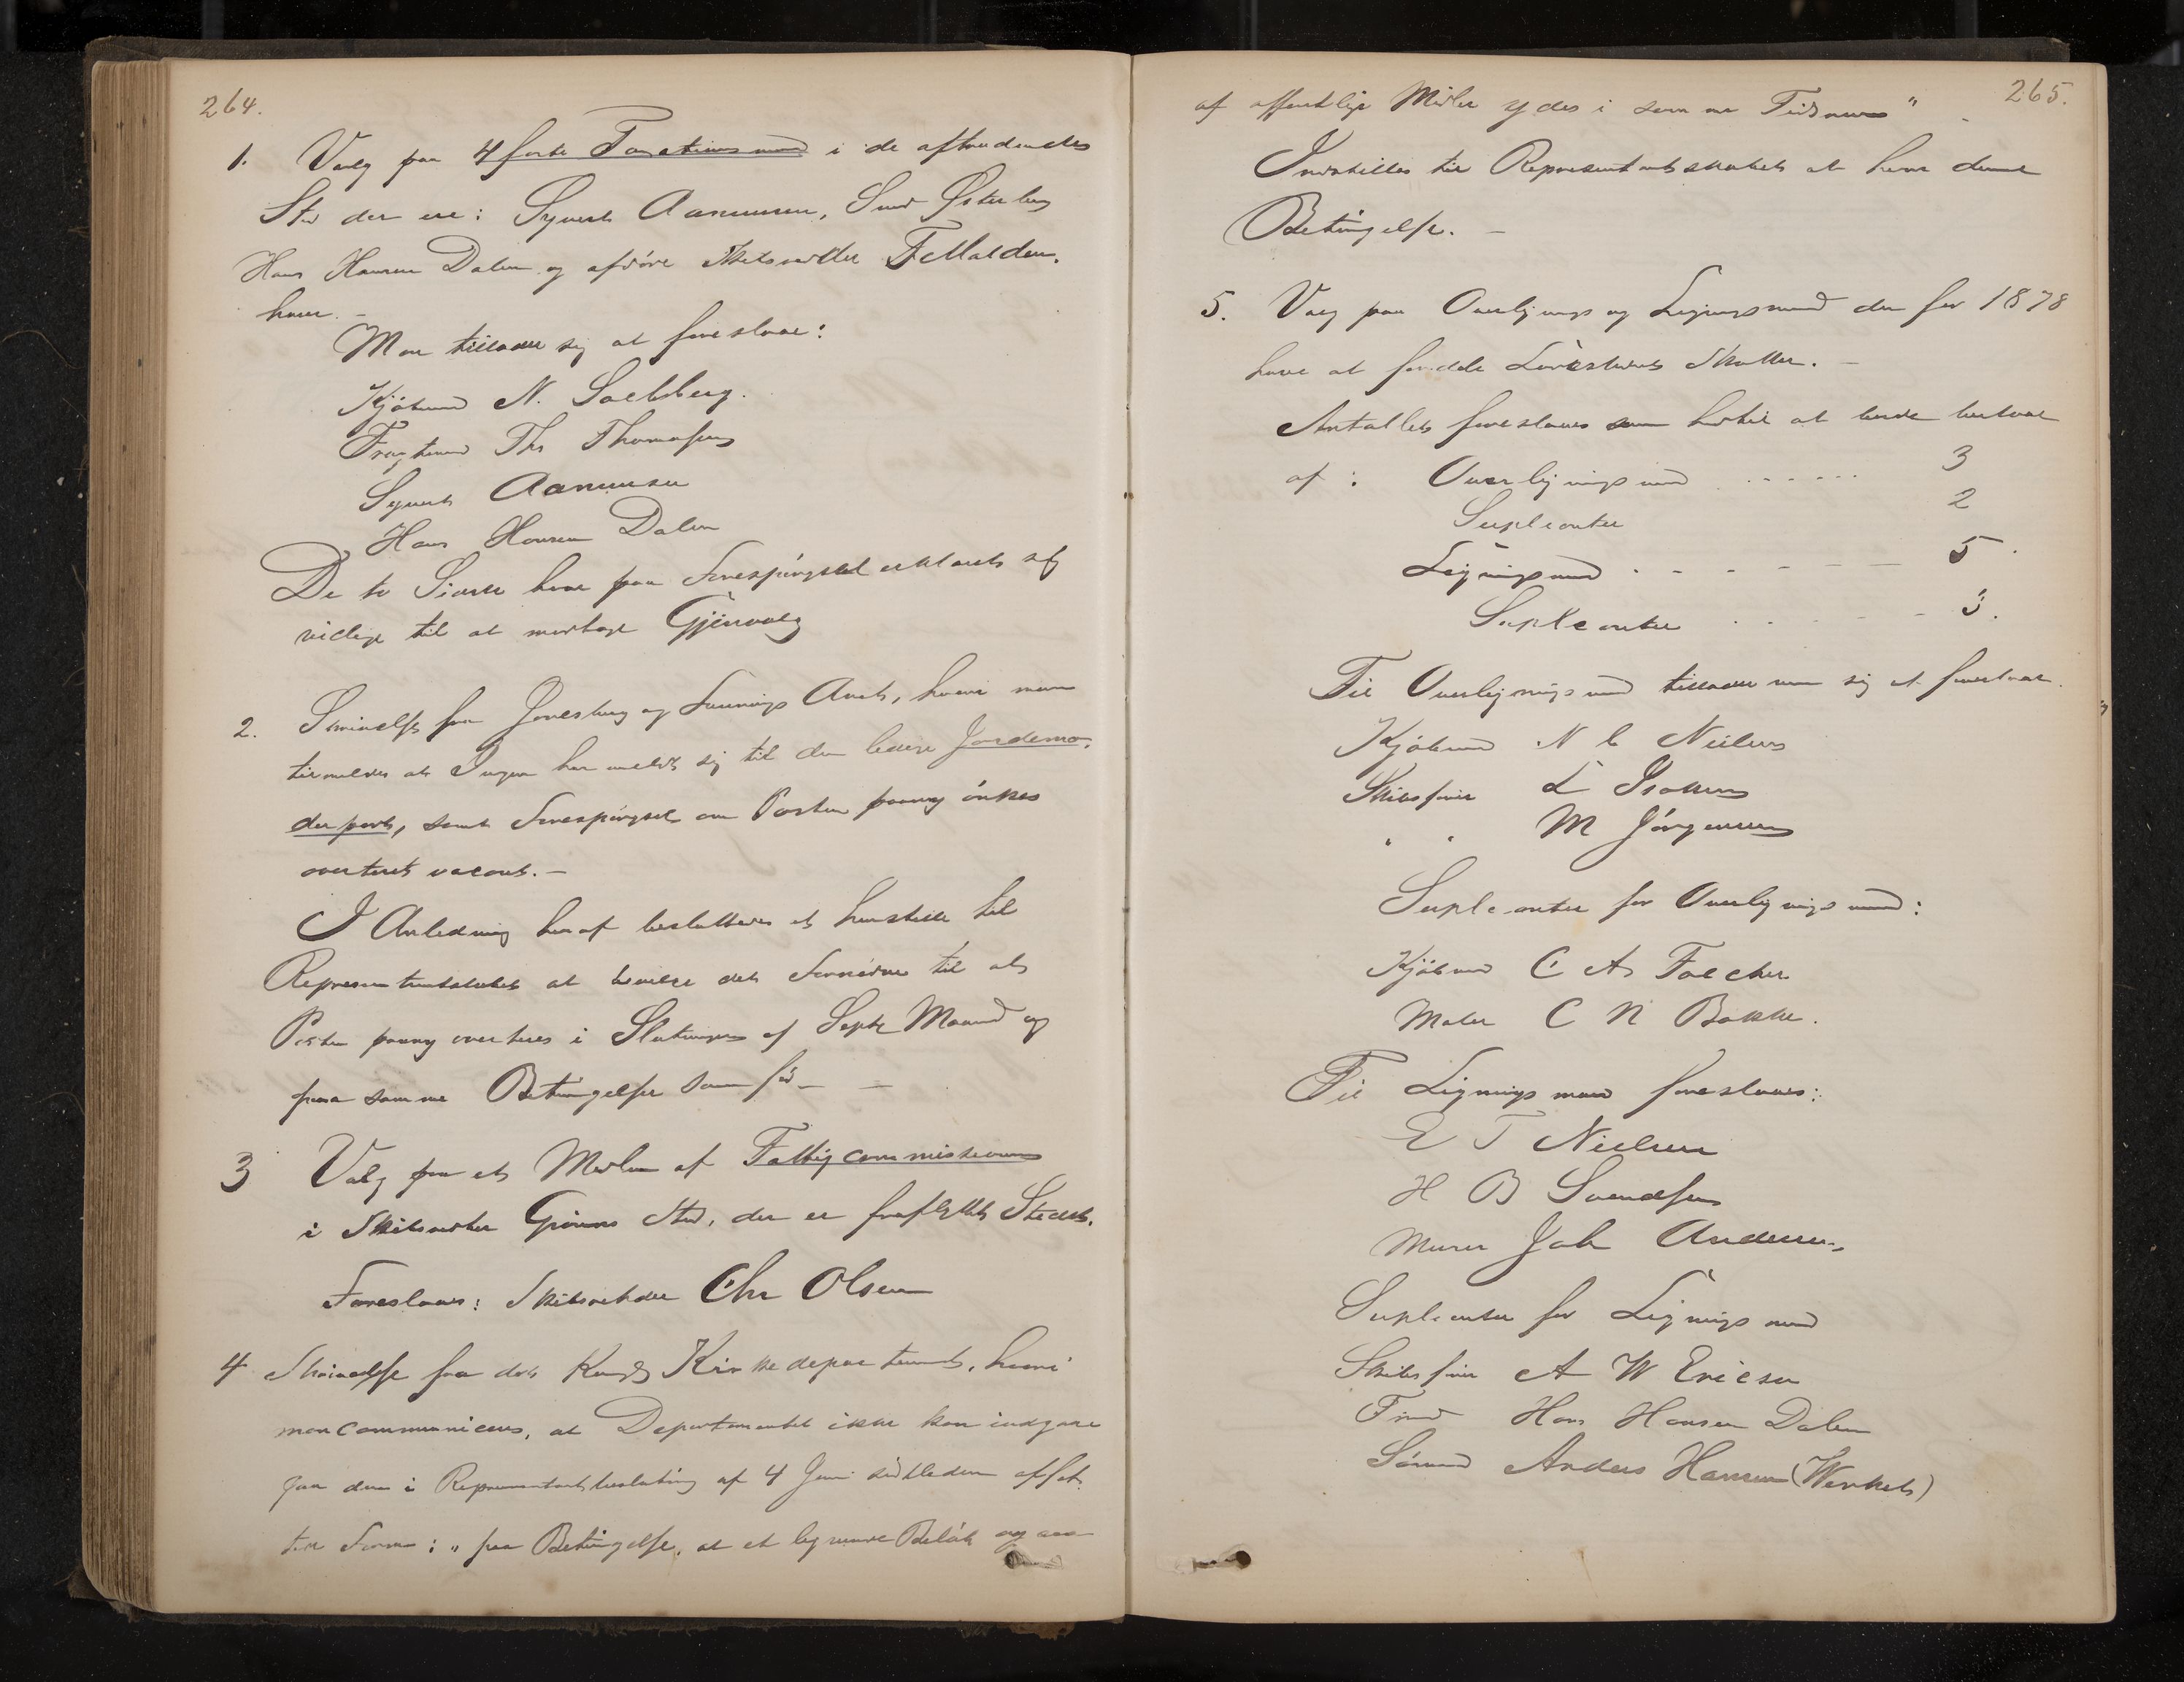 264.
1. Valg paa 4 faste Taxationsmænd i de aftrædendes
Sted der ere: Syvert Aanunsen, Sund Østerberg
Hans Hansen Dalen og afdöde Skibsreder F Malden
haver. -
Man tillader sig at foreslaae:
Kjöbmd N. Soelberg.
Fragtemd Ths Thomassen
Syvert Aanunsen
Hans Hansen Dalen
De to Sidste have paa Forespörgsel erklæret sig
villige til at modtage Gjenvalg
2. Skrivelse fra Jonesberg og Aanunds Aas, hvori man
tilmeldes at Ingen har meldt sig til den ledige Jordemo-
derpost, samt Forespörgsel om Posten paany önskes
averteret vacant. -
I Anledning heraf besluttedes at henstille til
Representantskabet at bevilge det Fornödne til at
Posten paany averteres i Slutningen af Septr Maaned og
paa samme Betingelser som för -
3 Valg paa et Medlem af Fattigcommissionen
i Skibsreder Grönns Sted, der er fraflyttet Stedet.
Foreslaaes: Skibsreder Chr Olsen
4 Skrivelse fra det Kongl Kirkedepartement, hvori
man communiceres, at Departementet ikke kan indgaae
paa den i Representantbeslutning af 4 Juni sidstleden affat-
tede Form: "paa Betingelse, at et lignende Belöb ogsaa
265.
af offentlige Midler ydes i samme Tidsrum"
Indstilles til Representantskabet at hæve denne
Betingelse. -
5. Valg paa Overligings og Ligningsmænd der for 1878
have at fordele Ladestedets Skatter. -
Antallet foreslaaes som hidtil at burde bestaae
af: Overligningsmænd ...... 3
Supleanter 2
Ligningsmænd . - - - - - 5.
Supleanter . . . - - 3.
Til Overligningsmænd tillader man sig at foreslaae.
Kjöbmd N C Nielsen
Skibsförer L Isaksen
" " M Jörgensen
Supleanter for Overligningsmænd:
Kjöbmd C A Falcher
Maler C N Bakke.
Til Ligningsmænd foreslaaes:
E T Nielsen
H B Svendsen
Murer Jak Andersen,
Supleanter for Ligningsmænd
Skibsförer A W Ericsen
Hans Hansen Dalen
Sömand Anders Hansen (Verket)